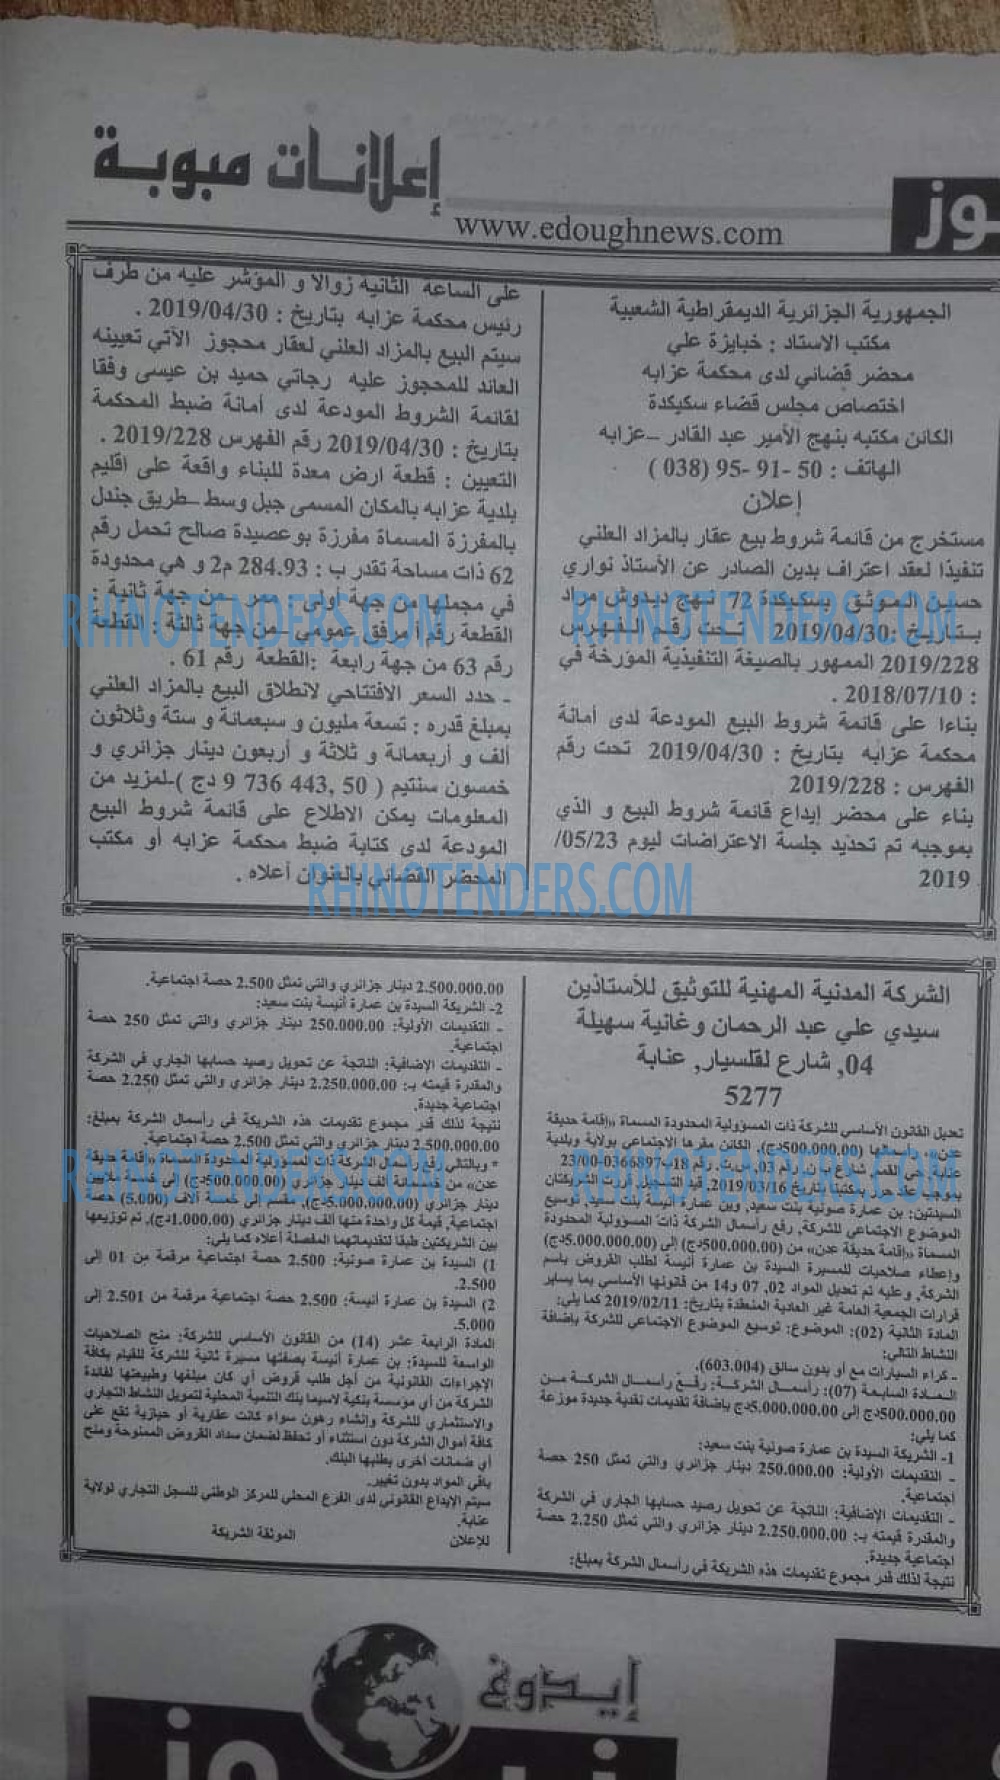 إعلانات مبوبة
www.edoughnews.com
يوز
الجمهورية الجزائرية الديمقراطية الشعبية
مكتب الاستاد : خبايزة علي
محضر قضائي لدى محكمة عزابه
اختصاص مجلس قضاء سكيكدة
الكائن مكتبه بنهج الأمير عبد القادر –عزابه
الهاتف : 50 -91 -95 (038 )
إعلان
مستخرج من قائمة شروط بيع عقار بالمزاد العلني
تنفيذا لعقد اعتراف بدين الصادر عن الأستاذ نواري
حسين الموثق بسكيكدة 72 نهج ديدوش مراد
بتاريخ :2019/04/30 تحت رقم الفهرس
2019/228 الممهور بالصيغة التنفيذية المؤرخة في
: 2018/07/10 .
بناءا على قائمة شروط البيع المودعة لدى أمانة
محكمة عزابه بتاريخ : 2019/04/30 تحت رقم
الفهرس : 2019/228
بناء على محضر إيداع قائمة شروط البيع و الذي
بموجبه تم تحديد جلسة الاعتراضات ليوم 05/23/
2019
على الساعة الثانية زوالا و المؤشر عليه من طرف
رئيس محكمة عزابه بتاريخ : 2019/04/30 .
سيتم البيع بالمزاد العلني لعقار محجوز الآتي تعيينه
العائد للمحجوز عليه رجاتي حميد بن عيسى وفقا
لقائمة الشروط المودعة لدى أمانة ضبط المحكمة
بتاريخ : 2019/04/30 رقم الفهرس 2019/228 .
التعيين : قطعة ارض معدة للبناء واقعة على اقليم
بلدية عزابه بالمكان المسمى جبل وسط –طريق جندل
بالمفرزة المسماة مفرزة بوعصيدة صالح تحمل رقم
62 ذات مساحة تقدر ب : 284.93 م2 و هي محدودة
في مجملها من جهة اولى : ممر من جهة ثانية :
القطعة رقم أ مرفق عمومي –من جهة ثالثة : القطعة
رقم 63 من جهة رابعة :القطعة رقم 61 .
- حدد السعر الافتتاحي لانطلاق البيع بالمزاد العلني
بمبلغ قدره : تسعة مليون و سبعمائة و ستة وثلاثون
ألف و أربعمائة و ثلاثة و أربعون دينار جزائري و
خمسون سنتيم ( 50 ,443 736 9 دج )-لمزيد من
المعلومات يمكن الاطلاع على قائمة شروط البيع
المودعة لدى كتابة ضبط محكمة عزابه أو مكتب
المحضر القضائي بالعنوان أعلاه .
RHINOTENDERS.COM
RHINOTENDERS.COM
RHINOTENDERS.COM
الشركة المدنية المهنية للتوثيق للأستاذين
سيدي علي عبد الرحمان وغانية سهيلة
04, شارع لقلسيار, عنابة
5277
تعديل القانون الأساسي للشركة ذات المسؤولية المحدودة المسماة «إقامة حديقة
عدن» رأسمالها (500.000.00دج), الكائن مقرها الاجتماعي بولاية وبلدية
عنابة حي القمم شارع ب ن, رقم 03, س.ت. رقم 18ب0366897-23/00
بموجب عقد حرر بمكتبنا بتاريخ 2019/03/16, قيد التسجيل, قررت الشريكتان
السيدتين: بن عمارة صونية بنت سعيد, وبن عمارة أنيسة بنت سعيد, توسيع
الموضوع الاجتماعي للشركة, رفع رأسمال الشركة ذات المسؤولية المحدودة
المسماة «إقامة حديقة عدن» من (500.000.00دج) إلى (5.000.000.00دج)
وإعطاء صلاحيات للمسيرة السيدة بن عمارة أنيسة لطلب القروض باسم
الشركة, وعليه تم تعديل المواد 02, 07 و14 من قانونها الأساسي بما يساير
قرارات الجمعية العامة غير العادية المنعقدة بتاريخ: 2019/02/11 كما يلي:
المادة الثانية (02): الموضوع: توسيع الموضوع الاجتماعي للشركة بإضافة
النشاط التالي:
- كراء السيارات مع أو بدون سائق (603.004).
المادة السابعة (07): رأسمال الشركة: رفع رأسمال الشركة من
500.000.00دج إلى 5.000.000.00دج باضافة تقديمات نقدية جديدة موزعة
كما يلي:
1- الشريكة السيدة بن عمارة صونية بنت سعيد:
- التقديمات الأولية: 250.000.00 دينار جزائري والتي تمثل 250 حصة
اجتماعية.
- التقديمات الإضافية: الناتجة عن تحويل رصيد حسابها الجاري في الشركة
والمقدرة قيمته بـ: 2.250.000.00 دينار جزائري والتي تمثل 2.250 حصة
اجتماعية جديدة.
نتيجة لذلك قدر مجموع تقديمات هذه الشريكة في رأسمال الشركة بمبلغ:
2.500.000.00 دينار جزائري والتي تمثل 2.500 حصة اجتماعية.
2- الشريكة السيدة بن عمارة أنيسة بنت سعيد:
- التقديمات الأولية: 250.000.00 دينار جزائري والتي تمثل 250 حصة
اجتماعية.
- التقديمات الإضافية: الناتجة عن تحويل رصيد حسابها الجاري في الشركة
والمقدرة قيمته بـ: 2.250.000.00 دينار جزائري والتي تمثل 2.250 حصة
اجتماعية جديدة.
نتيجة لذلك قدر مجموع تقديمات هذه الشريكة في رأسمال الشركة بمبلغ:
2.500.000.00 دينار جزائري والتي تمثل 2.500 حصة اجتماعية.
* وبالتالي رفع رأسمال الشركة ذات المسؤولية المحدودة المسماة «إقامة حديقة
عدن» من خمسمائة ألف دينار جزائري (500.000.00دج) إلى خمسة ملايين
دينار جزائري (5.000.000.00دج), مقسم إلى خمسة آلاف (5.000) حصة
اجتماعية, قيمة كل واحدة منها ألف دينار جزائري (1.000.00دج), تم توزيعها
بين الشريكتين طبقا لتقديماتهما المفصلة أعلاه كما يلي:
1) السيدة بن عمارة صونية: 2.500 حصة اجتماعية مرقمة من 01 إلى
2.500.
2) السيدة بن عمارة أنيسة: 2.500 حصة اجتماعية مرقمة من 2.501 إلى
5.000.
المادة الرابعة عشر (14) من القانون الأساسي للشركة: منح الصلاحيات
الواسعة للسيدة: بن عمارة أنيسة بصفتها مسيرة ثانية للشركة للقيام بكافة
الإجراءات القانونية من أجل طلب قروض أي كان مبلغها وطبيعتها لفائدة
الشركة من أي مؤسسة بنكية لاسيما بنك التنمية المحلية لتمويل النشاط التجاري
والاستثماري للشركة وإنشاء رهون سواء كانت عقارية أو حيازية تقع على
كافة أموال الشركة دون استثناء أو تحفظ لضمان سداد القروض الممنوحة ومنح
أي ضمانات أخرى يطلبها البنك.
باقي المواد بدون تغيير.
سيتم الإيداع القانوني لدى الفرع المحلي للمركز الوطني للسجل التجاري لولاية
عنابة.
للإعلان
الموثقة الشريكة
RHINOTENDERS.COM
RHINOTENDERS.COM
إيدوغ
نيوز